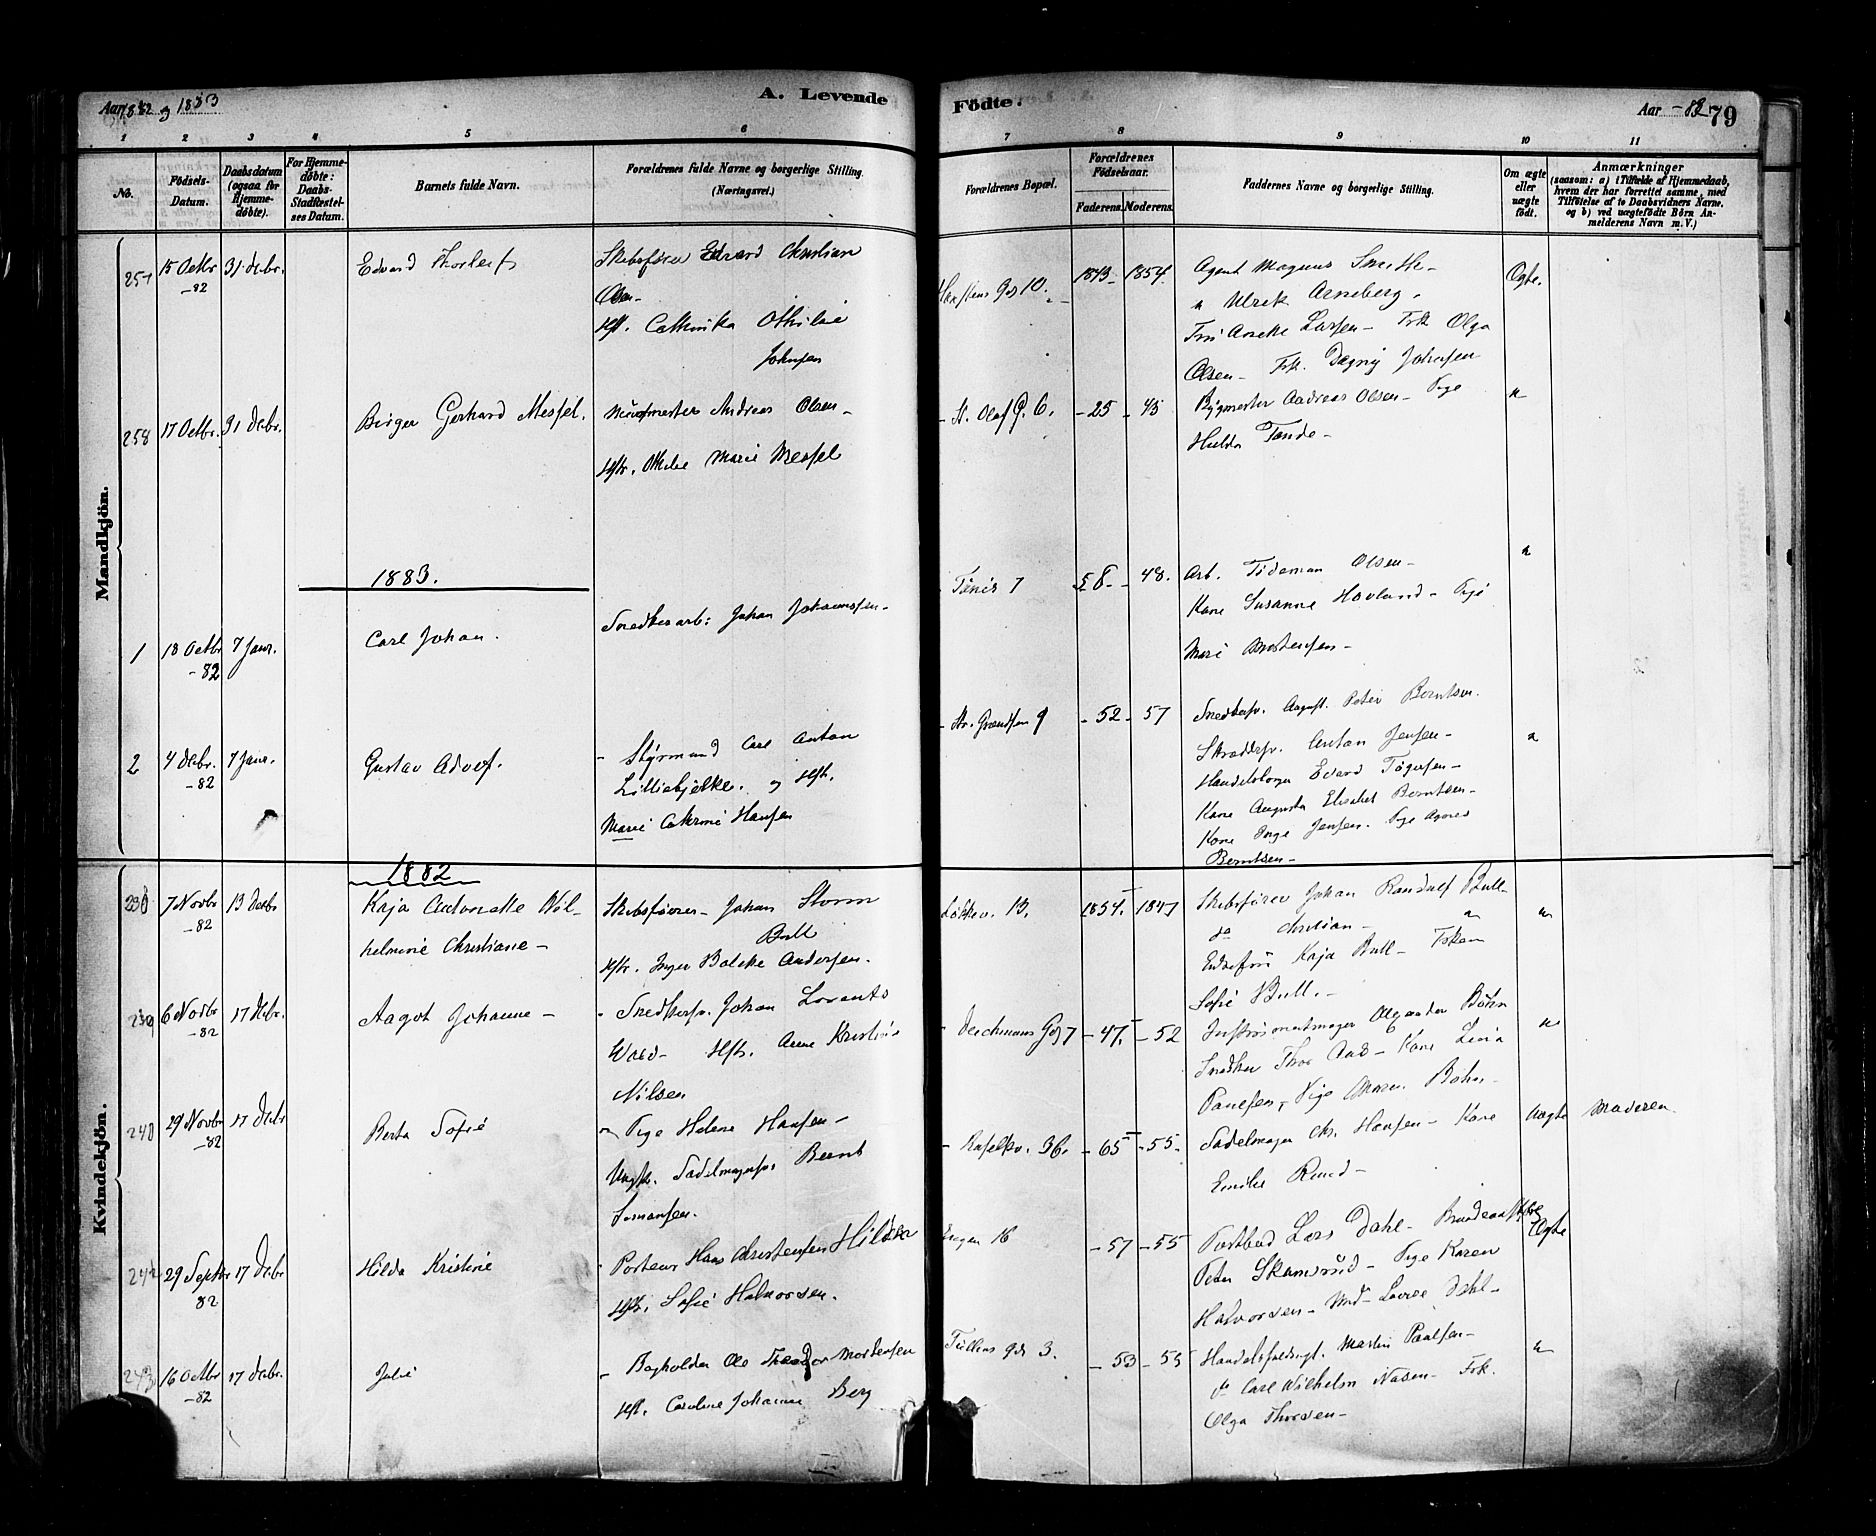 Aar 1882 og 1883
A. Levende
Födte.
Aar -83
79
1 2 3 4 5 6 7 8 9 10 11
No.
Födsels-
Datum.
Daabsdatum
(ogsaa for
Hjemme-
döbte).
For Hjemme-
döbte:
Daabs-
Stadfæstel-
ses Datum.
Barnets fulde Navn.
Forældrenes fulde Navne og borgerlige Stilling.
(Næringsvei.)
Forældrenes Bopæl.
Forældrenes
Födselsaar.
Faderens. Moderens.
Faddernes Navne og borgerlige Stilling.
Om ægte
eller
uægte
födt.
Anmærkninger
(saasom: a) i Tilfælde af Hjemmedaab,
hvem der har forrettet samme, med
Tilföielse af to Daabsvidners Navne.
og b) ved uægtefödte Börn An-
melderens Navn m. V.)
Mandkjön.
257 15 Octbr. 31 debr.
-82
Edvard Thorleif
Skibsfører Edvard Christian
Olsen
Hst. Cathinka Othilie
Johnsen
Gd 10.
1843 1854
Agent Magnus Smith
" Ulrik Arneberg.
Larsen - Frk Olga
Olsen - Frk. Dagny Johnsen
Ægte.
258 17 Octbr. 31 Debr.
Birger Gerhard Messel.
Murmester Andreas Olsen
Hstr. Othilie Marie Messel
- St. Olaf G. 6.
- 25 - 45
Bygmester Andreas Olsen - Pige
Hulda Tande -
"
1883.
1 18 Octbr 7 Janr.
-82
Carl Johan.
Snedkerarb: Johan Johannesen -
7
58 - 48.
Arb. Tideman Olsen -
Kone Susanne Hovland - Pige
Mari Mortensen -
"
2 4 Debr. 7 Janr.
-82
Gustav Adolf.
- Styrmand Carl Anton
Lilliebjelke. og Hst.
Marie Cathrine Hansen
- Grændsen 9
- 52 - 57
Snedkersv. August Peter Berntsen.
Skreddersv. Anton Jensen -
Handelsborger Edvard
Kone Augusta Elisabet Berntsen -
Kone Inga Jensen. Pige Agnes
Berntsen -
"
Kvindekjön.
1882
238 7 Novbr 13 Debr
-82
Kaja Antonette Wil-
helmine Christiane -
Skibsfører - Johan Storm
Bull
Hstr. Inger Bolette Andersen.
Løkkev. 13.
1854. 1847
Skibsfører Johan Randulf Bull -
do Christian -
Enkefru Kaja Bull - Frøken
Sofie Bull. -
"
239 6 Novbr 17 Debr.
-82
Aagot Johanne -
- Snedkersv. Johan Lorents
Hstr. Anne Kristine
Nilsen
- Deichmans Gd 7
- 47. - 52
Instrumentmager Alexander Böhn
Snedker Thor Aas - Kone Lina
Paulsen, Pige Maren Bohn -
"
240 29 Novbr 17 Debr
-82
Berta Sofie
- Pige Helene Hansen -
Ungk. Sadelmagersv. Bernt
Simonsen.
36.
- 65 - 55 -
Sadelmager Chr. Hansen - Kone
Emilie Ruud -
Uægte
Moderen.
242 29 Septbr 17 Debr
82
Hilda Kristine
- Porteur Hans Christensen
Hst. Sofie Halvorsen.
Engen 16
- 57 - 55
Postbud Lars Dahl -
Peter Skamsrud - Pige Karen
Halvorsen - Dahl -
Ægte
243 16 Octbr 17 Debr.
-82
Julie
- Bogholder Ole Theodor Mortensen
Hst. Caroline Johanne Berg
Tullins gd 3.
- 53 - 55
Handelsfuldmgt. Martin Paulsen -
do Carl Wilhelm Nilsen - Frk.
Olga Thorsen -
"